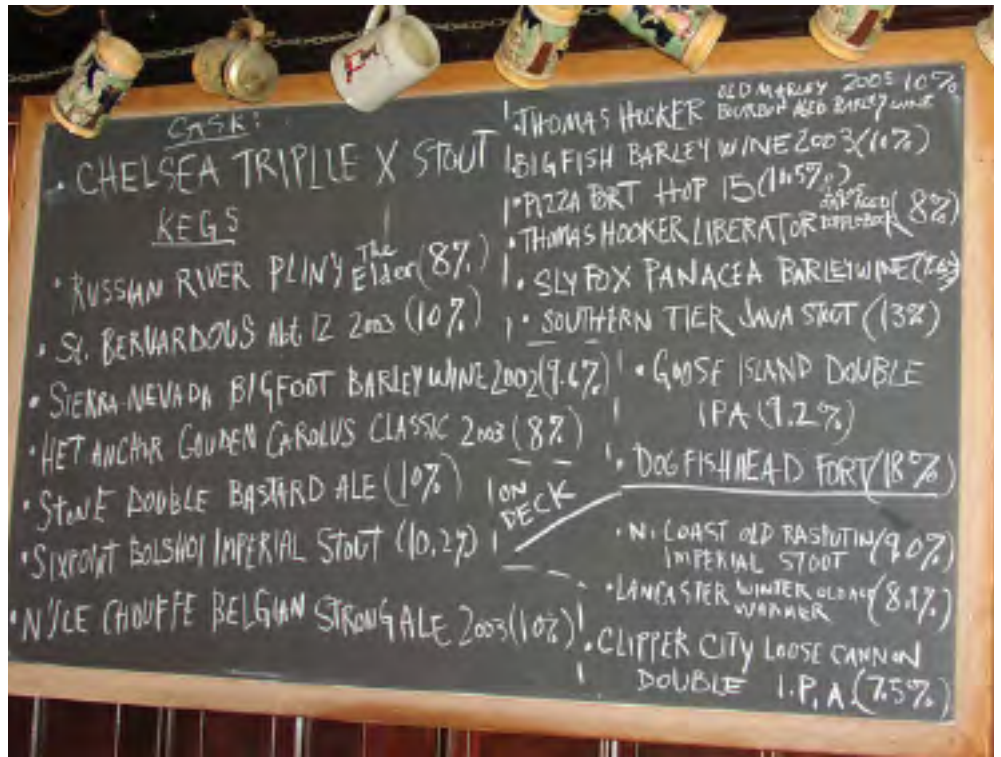 CASK:
• CHELSEA TRIPLLE X STOUT
KEGS
• RUSSIAN RIVER PLINY The Elder (8%)
• St. BERNARDOUS Abt 12 2003 (10%)
• SIERRA-NEVADA BIGFOOT BARLEYWINE 2002 (9.6%)
• HET ANCHOR GOUDEN CAROLUS CLASSIC 2003 (8%)
• STONE DOUBLE BASTARD ALE (10%)
• SIXPOINT BOLSHOI IMPERIAL STOUT (10.2%)
• N'ICE CHOUFFE BELGIAN STRONG ALE 2003 (10%)
• THOMAS HOOKER OLD MARLEY 2005 10%
BOURBON AGED BARLEY WINE
• BIG FISH BARLEY WINE 2003 (10%)
• PIZZA PORT HOP 15 (10.5%)
• THOMAS HOOKER LIBERATOR (8%)
• SLY FOX PANACEA BARLEYWINE
• SOUTHERN TIER JAVA STOUT (13%)
• GOOSE ISLAND DOUBLE
IPA (9.2%)
• DOGFISHHEAD FORT (18%)
ON
DECK
• N. COAST OLD RASPUTIN (9.0%)
IMPERIAL STOUT
• LANCASTER WINTER (8.1%)
WARMER
• CLIPPER CITY LOOSE CANNON
DOUBLE I.P.A (7.5%)